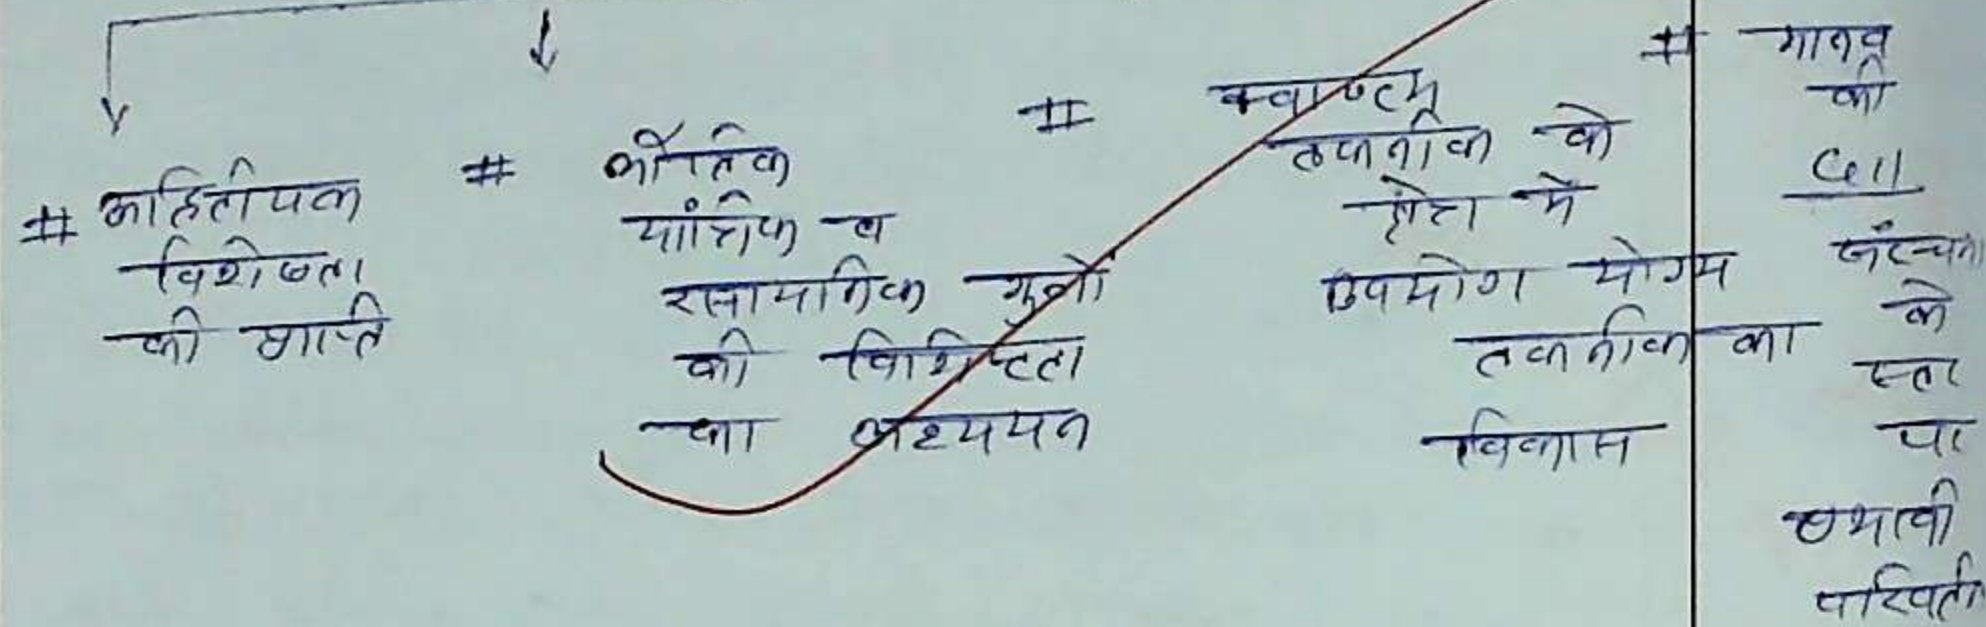 # अद्वितीयक
विशेषता
की प्राप्ति
# भौतिक
यांत्रिक व
रसायनिक गुणों
की विशिष्टता
का अध्ययन
# क्वाण्टम
तकनीक के
क्षेत्र में
उपयोग योग्य
तकनीक का
विकास
# मानव
की
Cell
संरचना
के
स्तर
पर
प्रभावी